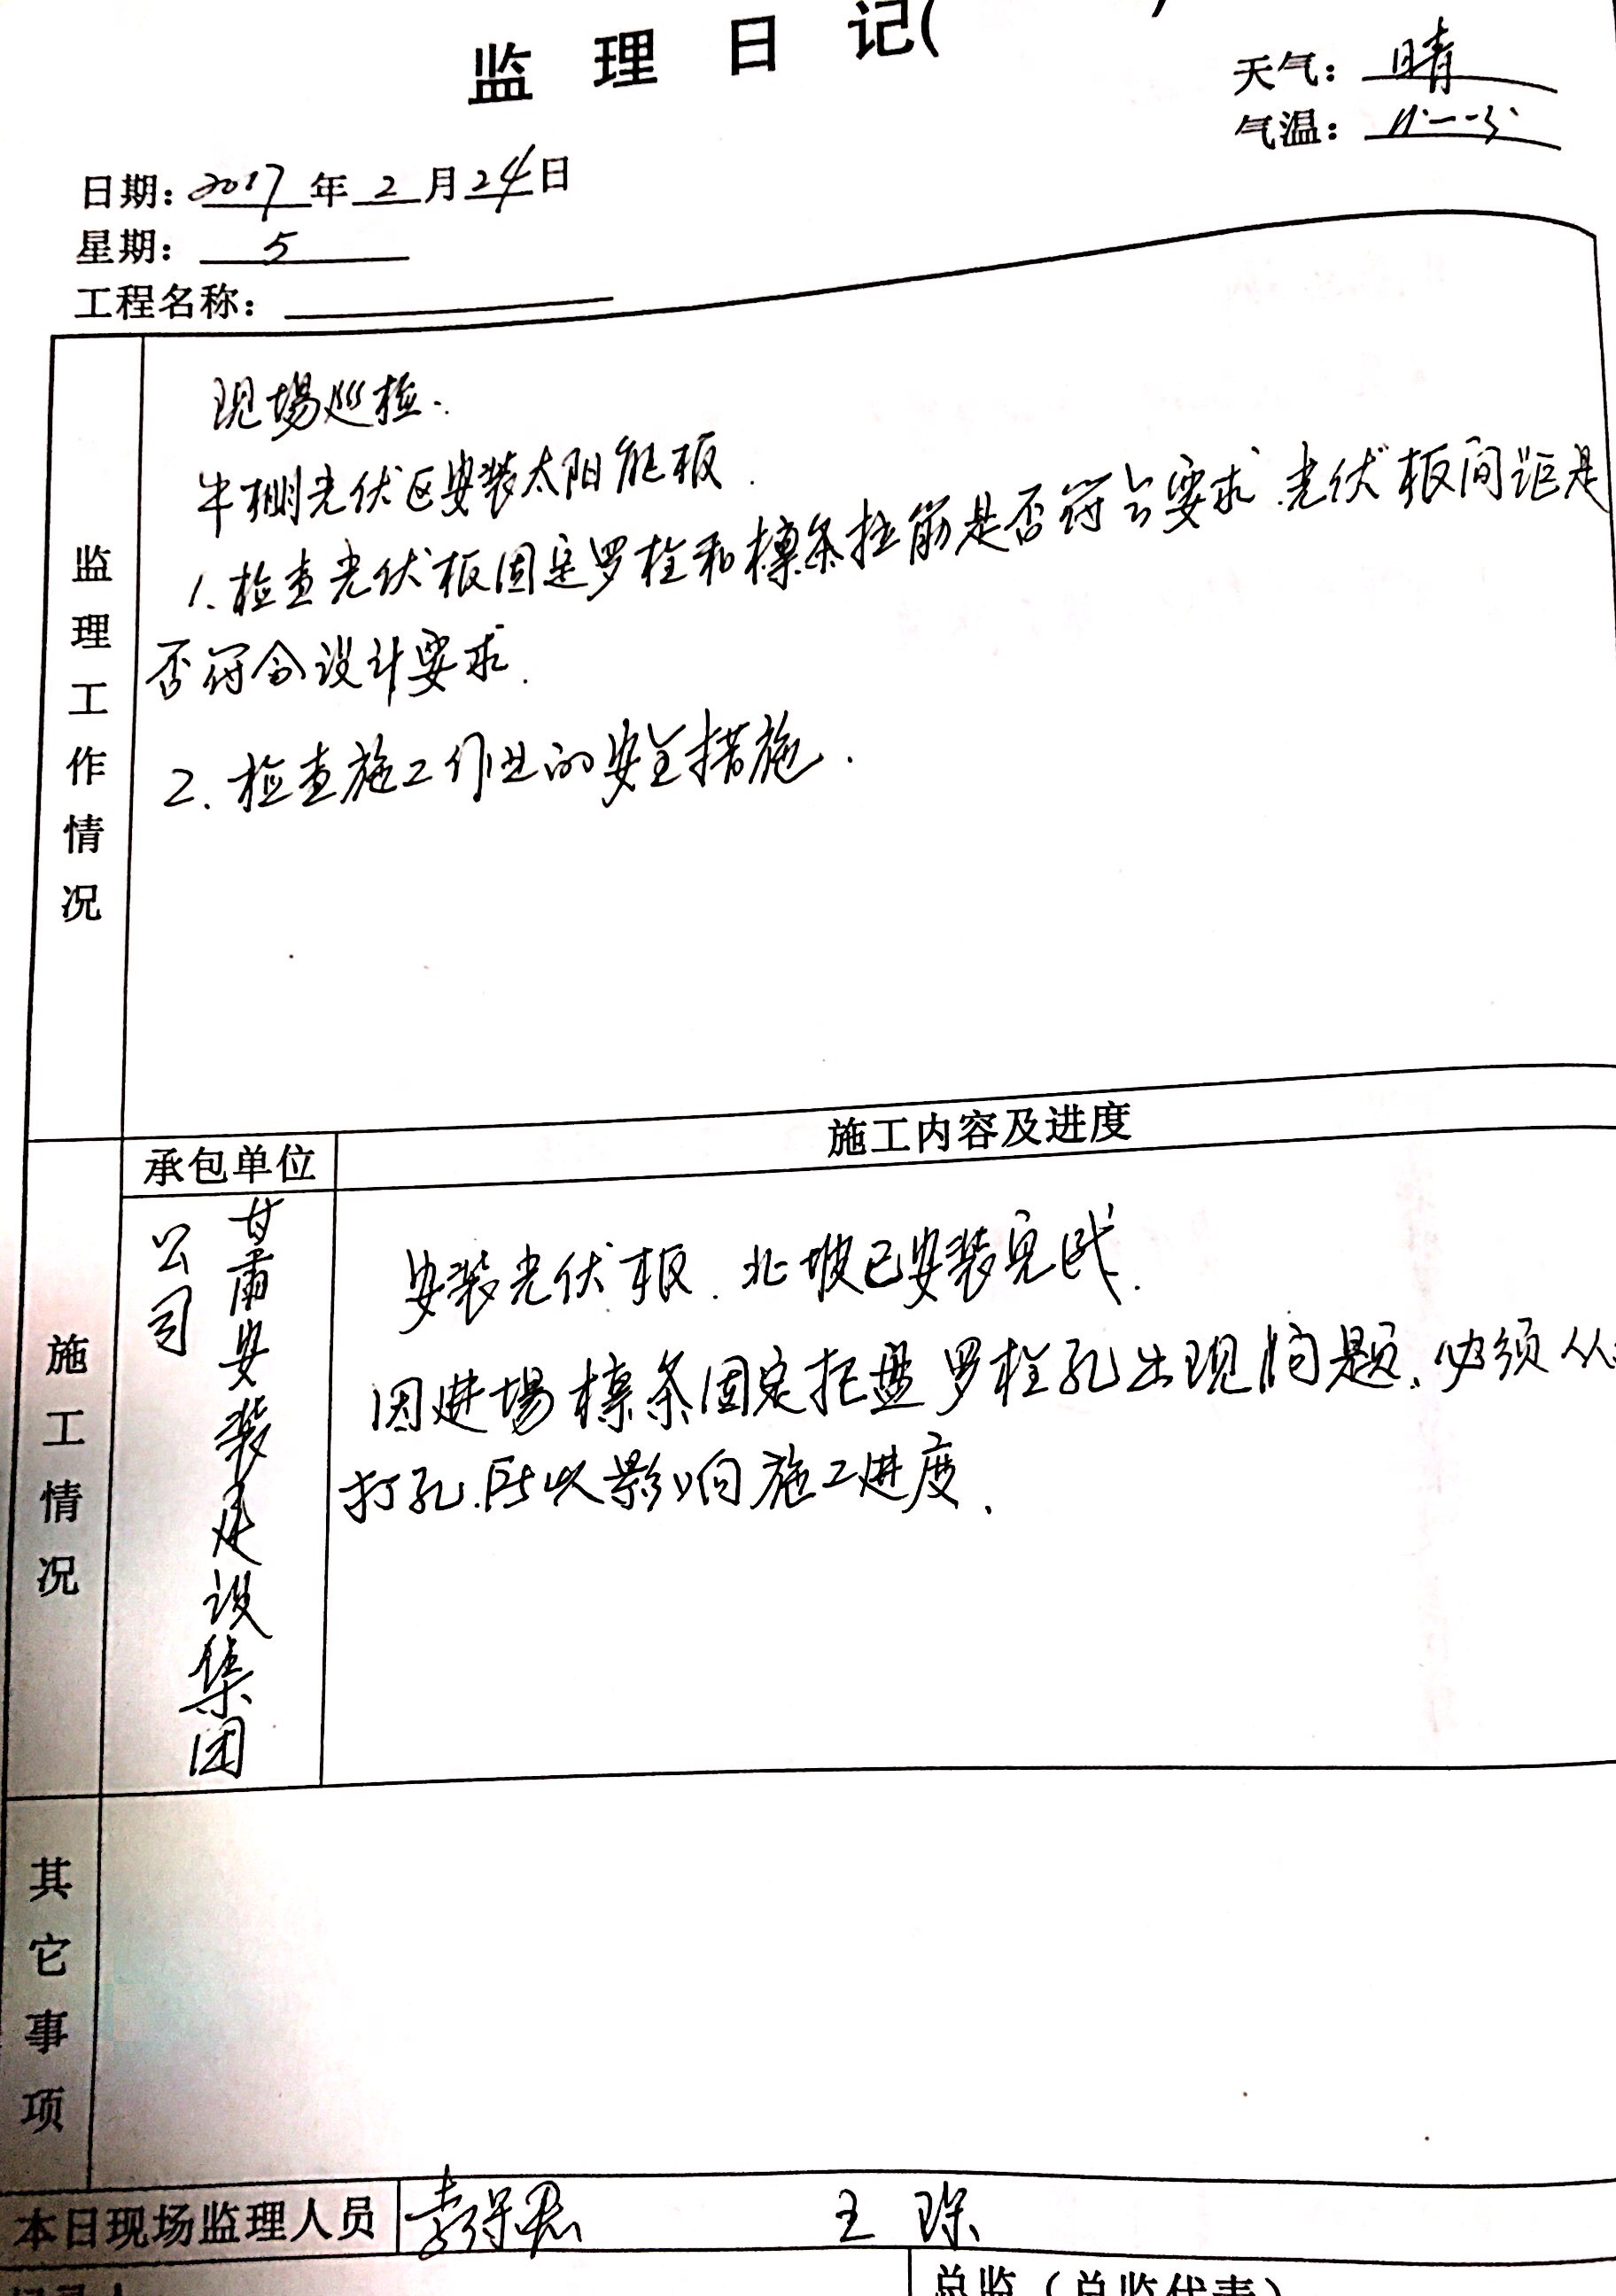 监理日记(
天气：晴
气温：
日期：2017年2月24日
星期：5
工程名称：
监理工作情况
现場巡检.
牛棚光伏区安装太阳能板.
1.检查光伏板固定罗栓和檩条拉筋是否符合要求.光伏板间距是
否符合设计要求.
2.检查施工作业的安全措施.
施工情况
承包单位
施工内容及进度
甘肃安装建设集团
公司
安装光伏板.北坡已安装完成.
因进場檩条固定托盘罗栓孔出现问题.必须从
打孔.所以影响施工进度.
其它事项
本日现场监理人员
王琛
总监（总监代表）